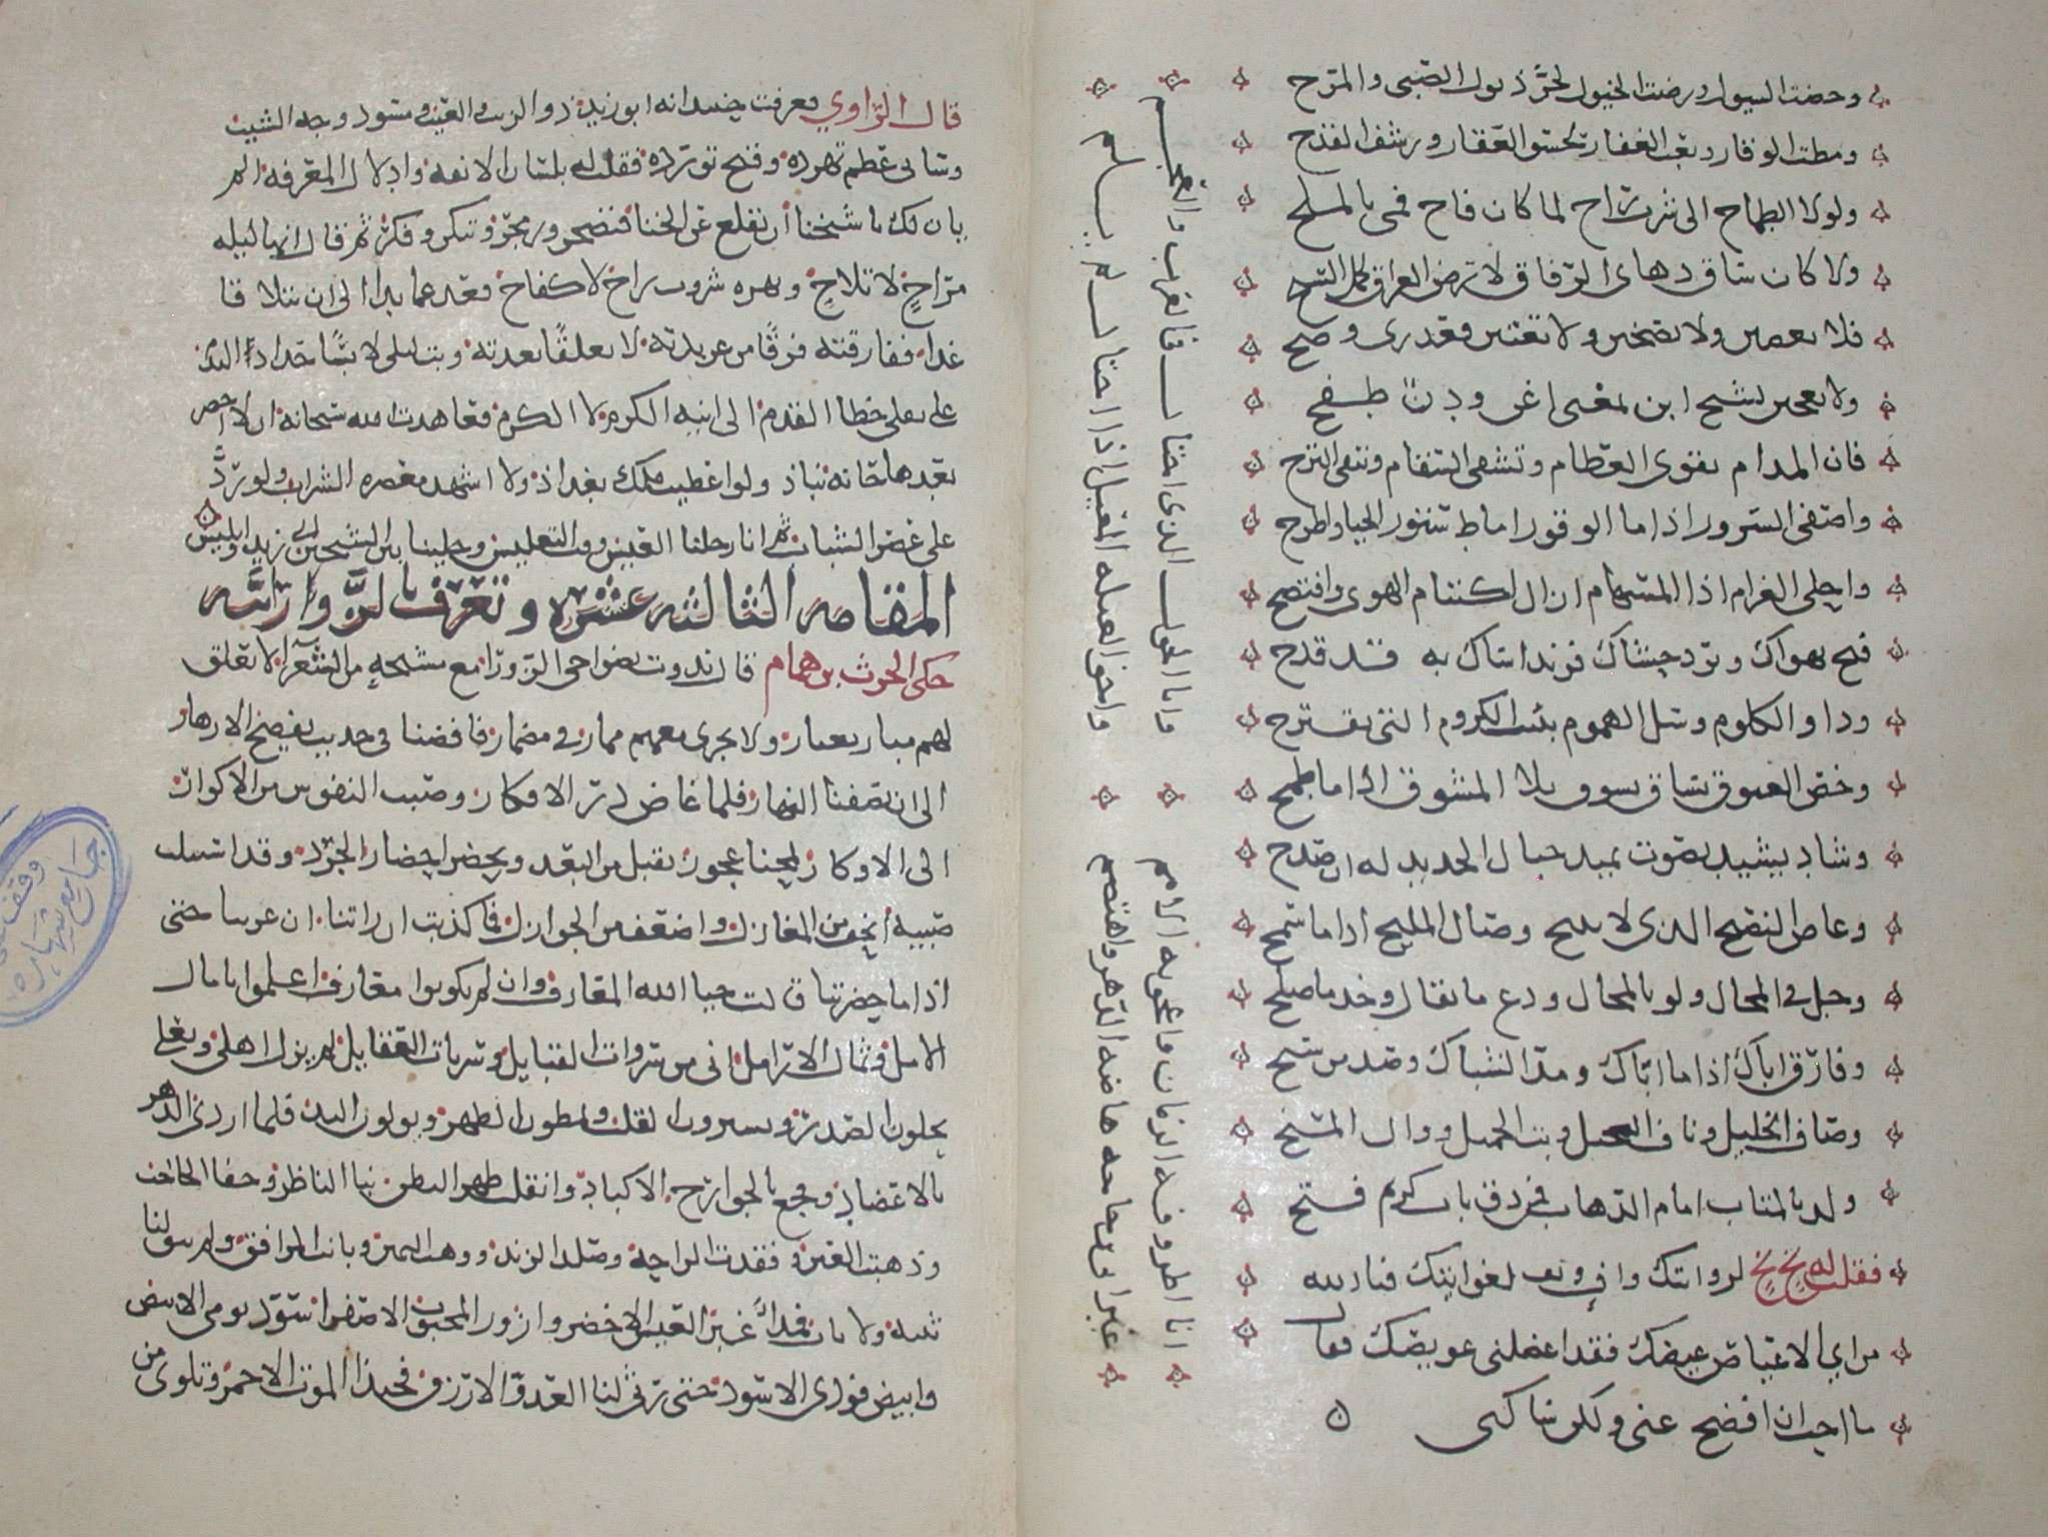 وخضت السيول ورضت الخيول لجرّ ذيول الصّبى والمرح
ومطت الوقار وبعت العقار لحسو العقار ورشف القدح
ولولا الطماح الى شرب راح لما كان فاح فمى بالملح
ولا كان ساق دهاى الرفاق لارض العراق بحمل السبح
فلا تغضبن ولا تصخبن ولا تعتبن فعذرى وضح
ولا تعجبن لشيخ ابن بمغنى اغن ودنّ طفح
فان المدام تقوى العظام وتشفى السقام وتنفى الترح
واصفى السرور اذا ما الوقور اماط ستور الحيا واطرح
واحلى الغرام اذا المستهام ازال اكتتام الهوى وافتضح
فبح بهواك وبرد حشاك فزند اساك به قد قدح
وداو الكلوم وسل الهموم ببنت الكروم التى تقترح
وخص الغبوق بساق يسوق بلا المشوق اذا ما طمح
وشاد يشيد بصوت تميد جبال الحديد له ان صدح
وعاص النصيح الذى لا يبيح وصال المليح اذا ما سمح
وجل فى المحال ولو بالمحال ودع ما يقال وخذ ما صلح
وفارق اباك اذا ما اباك ومد الشباك وصد من سنح
وصاف الخليل وناف البخيل وبث الجميل ووال المنح
ولذ بالمتاب امام الذهاب فمن دق باب كريم فتح
فقلت له بخ بخ لروايتك واف وتف لغوايتك فبالله
من اي الاعياص عيصك فقد اعضلنى عويصك فقال
ما احب ان افصح عنى ولكن ساكنى
انا اطروفة الزمان واعجوبة الامم
وانا الحول الذى احتال فى العرب والعجم
غير انى ابن حاجه هاضه الدهر واهتضم
واخو العيله المعيل اذا احتال لم يلم
قال الراوي فعرفت حينيذ انه ابو زيد ذو الريب والعيب ومسود وجه الشيب
وسانى عظم تمرده وقبح تورده فقلت له بلسان الانفه وادلال المعرفه الم
يان لك يا شيخنا ان تقلع عن الخنا فتضجر وزمجر وتنكر وفكر ثم قال انها ليله
مراح لا تلاح ونهزه شرب راح لا كفاح فعد عما بدا الى ان نتلاقا
غدا ففارقته فرقًا من عربدته لا تعلقًا بعدته وبت ليلى لابسًا حداد الندم
على نقلى خطا القدم الى ابنه الكرم لا الكرم وعاهدت الله سبحانه ان لا احضر
بعدها حانة نباذ ولو اعطيت ملك بغداذ ولا اشهد معصره الشراب ولو ردّ
على عصر الشباب ثم انا رحلنا العيس وقت التغليس وخلينا بين الشيخين ابي زيد وابليس
المقامه الثالثه عشره وتعرف بالزورائيه
حكى الحرث بن همام قال ندوت بضواحى الزورا مع مشيخه من الشعرا لا يعلق
لهم مبار بغبار ولا يجرى معهم ممار فى مضمار فافضنا فى حديث يفضح الازهار
الى ان نصفنا النهار فلما غاض در الافكار وصبت النفوس من الاكوار
الى الاوكار لمحنا عجوزا تقبل من البعد وتحضر احضار الجرد وقد استتلت
صبية انحف من المغازل واضعف من الجوازل فما كذبت ان راتنا ان عرتنا حتى
اذا ما حضرتنا قالت حيا الله المعارف وان لم يكونوا معارف اعلموا يا مال
الامل وثمال الارامل انى من سروات القبايل وسريات العقايل لم يزل اهلى وبعلى
يحلون الصدر ويسيرون القلب ويمطون الظهر ويولون اليد فلما اردى الدهر
بالاعضاد وفجع بالجوارح الاكباد وانقلب ظهرا لبطن نبا الناظر وجفا الحاجب
وذهبت العين وفقدت الراحه وصلد الزند ووهنت اليمين وبانت المرافق ولم يبق لنا
ثنيه ولا ناب فمذ اغبر العيش الاخضر وازور المحبوب الاصفر اسود يومى الابيض
وابيض فودى الاسود حتى رثى لنا العدو الازرق فحبذا الموت الاحمر وتلوى من